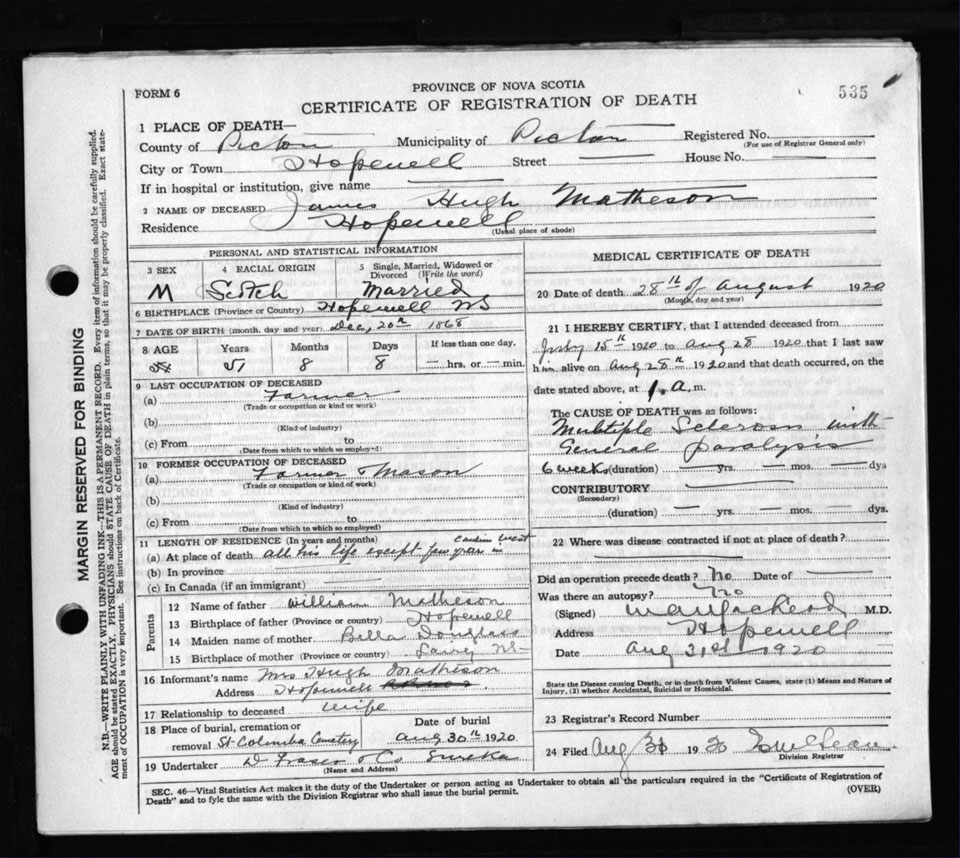 PROVINCE OF NOVA SCOTIA
FORM 6
CERTIFICATE OF REGISTRATION OF DEATH
535
1 PLACE OF DEATH—
County of Pictou Municipality of Pictou Registered No.
(For use of Registrar General only)
City or Town Hopewell Street — House No. —
If in hospital or institution, give name —
2 NAME OF DECEASED James Hugh Matheson
Residence Hopewell
(Usual place of abode)
PERSONAL AND STATISTICAL INFORMATION
3 SEX 4 RACIAL ORIGIN 5 Single, Married, Widowed or Divorced (Write the word)
M Scotch Married
6 BIRTHPLACE (Province or Country) Hopewell NS
7 DATE OF BIRTH (month, day and year) Dec, 20th 1868
8 AGE Years Months Days If less than one day,
51 8 8 — hrs. or — min.
9 LAST OCCUPATION OF DECEASED
(a) Farmer
(Trade or occupation or kind or work)
(b)
(Kind of industry)
(c) From to
(Date from which to which so employed)
10 FORMER OCCUPATION OF DECEASED
(a) Farmer & Mason
(Trade or occupation or kind of work)
(b)
(Kind of industry)
(c) From to
(Date from which to which so employed)
11 LENGTH OF RESIDENCE (In years and months)
(a) At place of death all his life except few years in West
(b) In province —
(c) In Canada (if an immigrant)
Parents
12 Name of father William Matheson
13 Birthplace of father (Province or country) Hopewell
14 Maiden name of mother Bella Douglass
15 Birthplace of mother (Province or country) NS
16 Informant's name Mrs Hugh Matheson
Address Hopewell
17 Relationship to deceased wife
18 Place of burial, cremation or removal St. Columba Cemetery
Date of burial
Aug 30th 1920
19 Undertaker D Fraser & Co Eureka
(Name and Address)
MEDICAL CERTIFICATE OF DEATH
20 Date of death 28th of August 1920
(Month, day and year)
21 I HEREBY CERTIFY, that I attended deceased from
July 15th 1920 to Aug 28 1920 that I last saw
him alive on Aug 28th 1920 and that death occurred, on the
date stated above, at 1. a. m.
The CAUSE OF DEATH was as follows:
Multiple Sclerosis with
General paralysis
6 weeks (duration) — yrs. — mos. — dys
CONTRIBUTORY —
(Secondary)
(duration) — yrs. — mos. — dys.
22 Where was disease contracted if not at place of death?
Did an operation precede death? No Date of —
Was there an autopsy? No
(Signed) M.D.
Address Hopewell
Date Aug 31st 1920
State the Disease causing Death, or in death from Violent Causes, state (1) Means and Nature of Injury, (2) whether Accidental, Suicidal or Homicidal.
23 Registrar's Record Number
24 Filed Aug 31 1920
Division Registrar
SEC. 46—Vital Statistics Act makes it the duty of the Undertaker or person acting as Undertaker to obtain all the particulars required in the "Certificate of Registration of
Death" and to fyle the same with the Division Registrar who shall issue the burial permit.
(OVER)
MARGIN RESERVED FOR BINDING
N.B.—WRITE PLAINLY WITH UNFADING INK—THIS IS A PERMANENT RECORD. Every item of information should be carefully supplied.
AGE should be stated EXACTLY. PHYSICIANS should STATE CAUSE OF DEATH in plain terms, so that it may be properly classified. Exact state-
ment of OCCUPATION is very important. See instructions on back of Certificate.